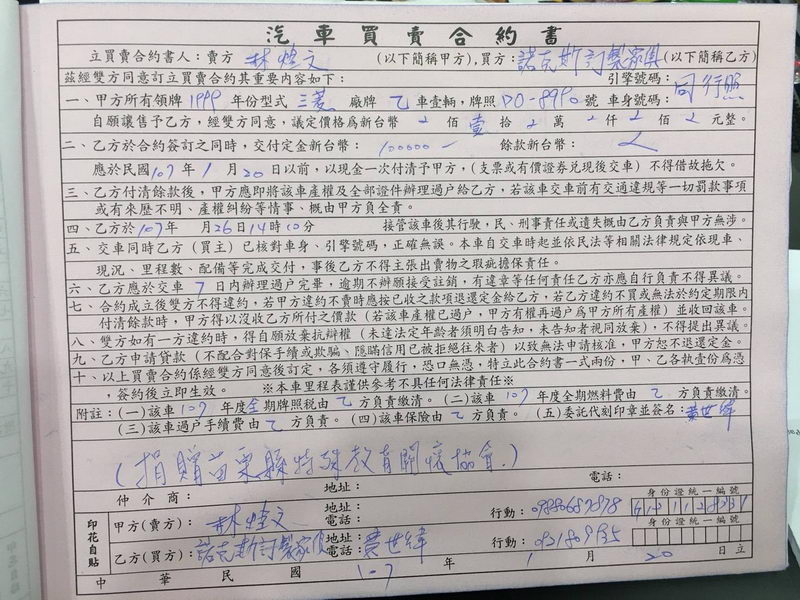 汽車買賣合約書
立買賣合約書人：賣方 林煌文 （以下簡稱甲方），買方：諾克斯訂製家俱（以下簡稱乙方）
茲經雙方同意訂立買賣合約其重要內容如下： 引擎號碼：
一、甲方所有領牌1999年份型式三菱廠牌乙車壹輛，牌照DO-8990號 車身號碼：同行照
自願讓售予乙方，經雙方同意，議定價格為新台幣 佰壹拾 萬 仟 佰 元整。
二、乙方於合約簽訂之同時，交付定金新台幣：100000- 餘款新台幣：
應於民國107年1月20日以前，以現金一次付清予甲方，（支票或有價證券兌現後交車）不得借故拖欠。
三、乙方付清餘款後，甲方應即將該車產權及全部證件辦理過戶給乙方，若該車交車前有交通違規等一切罰款事項
或有來歷不明、產權糾紛等情事、概由甲方負全責。
四、乙方於107年 月26日14時10分 接管該車後其行駛，民、刑事責任或遺失概由乙方負責與甲方無涉。
五、交車同時乙方（買主）已核對車身、引擎號碼，正確無誤。本車自交車時起並依民法等相關法律規定依現車、
現況、里程數、配備等完成交付，事後乙方不得主張出賣物之瑕疵擔保責任。
六、乙方應於交車7日內辦理過戶完畢，逾期不辦願接受註銷，有違章等任何責任乙方亦應自行負責不得異議。
七、合約成立後雙方不得違約，若甲方違約不賣時應按已收之款項退還定金給乙方，若乙方違約不買或無法於約定期限內
付清餘款時，甲方得以沒收乙方所付之價款（若該車產權已過戶，甲方有權再過戶為甲方所有產權）並收回該車。
八、雙方如有一方違約時，得自願放棄抗辯權（未達法定年齡者須明白告知，未告知者視同放棄），不得提出異議。
九、乙方申請貸款（不配合對保手續或欺騙、隱瞞信用已被拒絕往來者）以致無法申請核准，甲方恕不退還定金。
十、以上買賣合約係經雙方同意後訂定，各須遵守履行，恐口無憑，特立此合約書一式兩份，甲、乙各執壹份為憑
，簽約後立即生效。 ※本車里程表謹供參考不具任何法律責任※
附註：（一）該車107年度全期牌照稅由乙方負責繳清。（二）該車107年度全期燃料費由乙方負責繳清。
（三）該車過戶手續費由乙方負責。（四）該車保險由乙方負責。（五）委託代刻印章並簽名：黃世緯
（捐贈苗栗縣特殊教育關懷協會）
仲介商： 地址： 電話：
身份證統一編號
印花自貼
甲方（賣方）：林煌文 地址： 電話： 行動：
身份證統一編號
乙方（買方）：諾克斯訂製家俱 地址： 電話：黃世緯 行動：
中華民國107年1月20日立